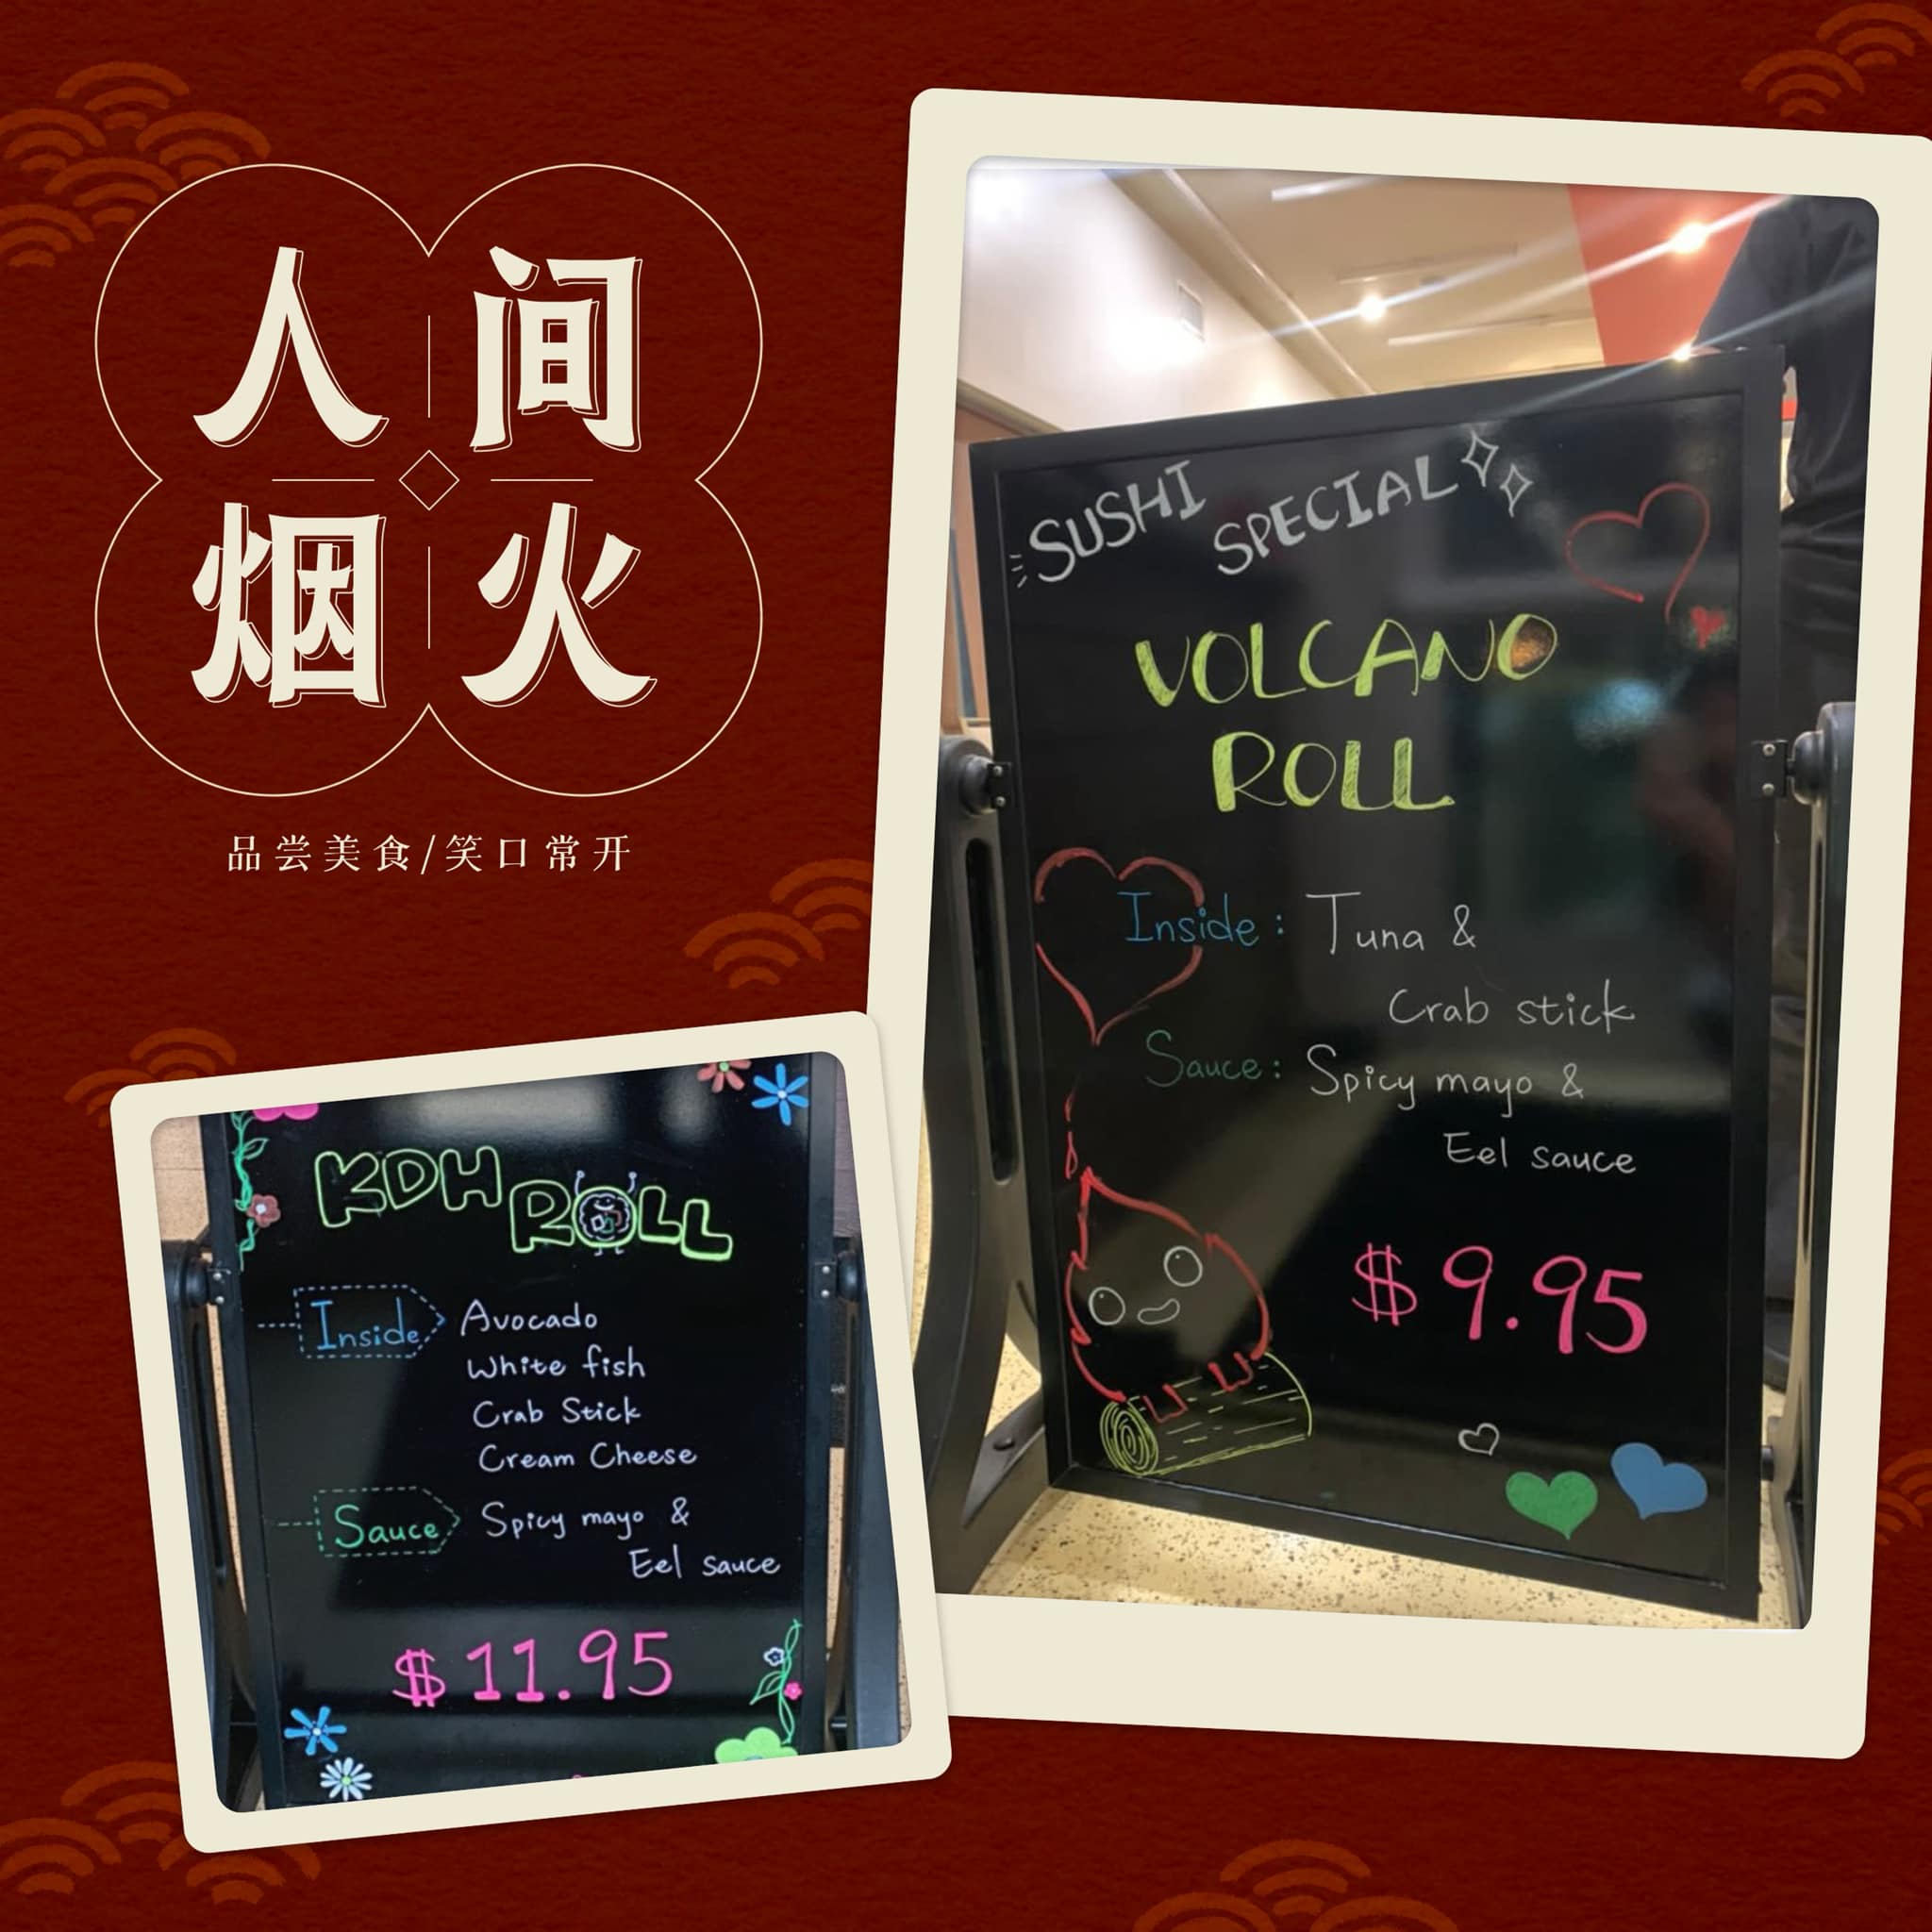 人间
烟火
品尝美食/笑口常开
SUSHI SPECIAL
VOLCANO
ROLL
Inside: Tuna &
Crab stick
Sauce: Spicy mayo &
Eel sauce
$9.95
KDH ROLL
Inside Avocado
White fish
Crab Stick
Cream Cheese
Sauce Spicy mayo &
Eel sauce
$11.95